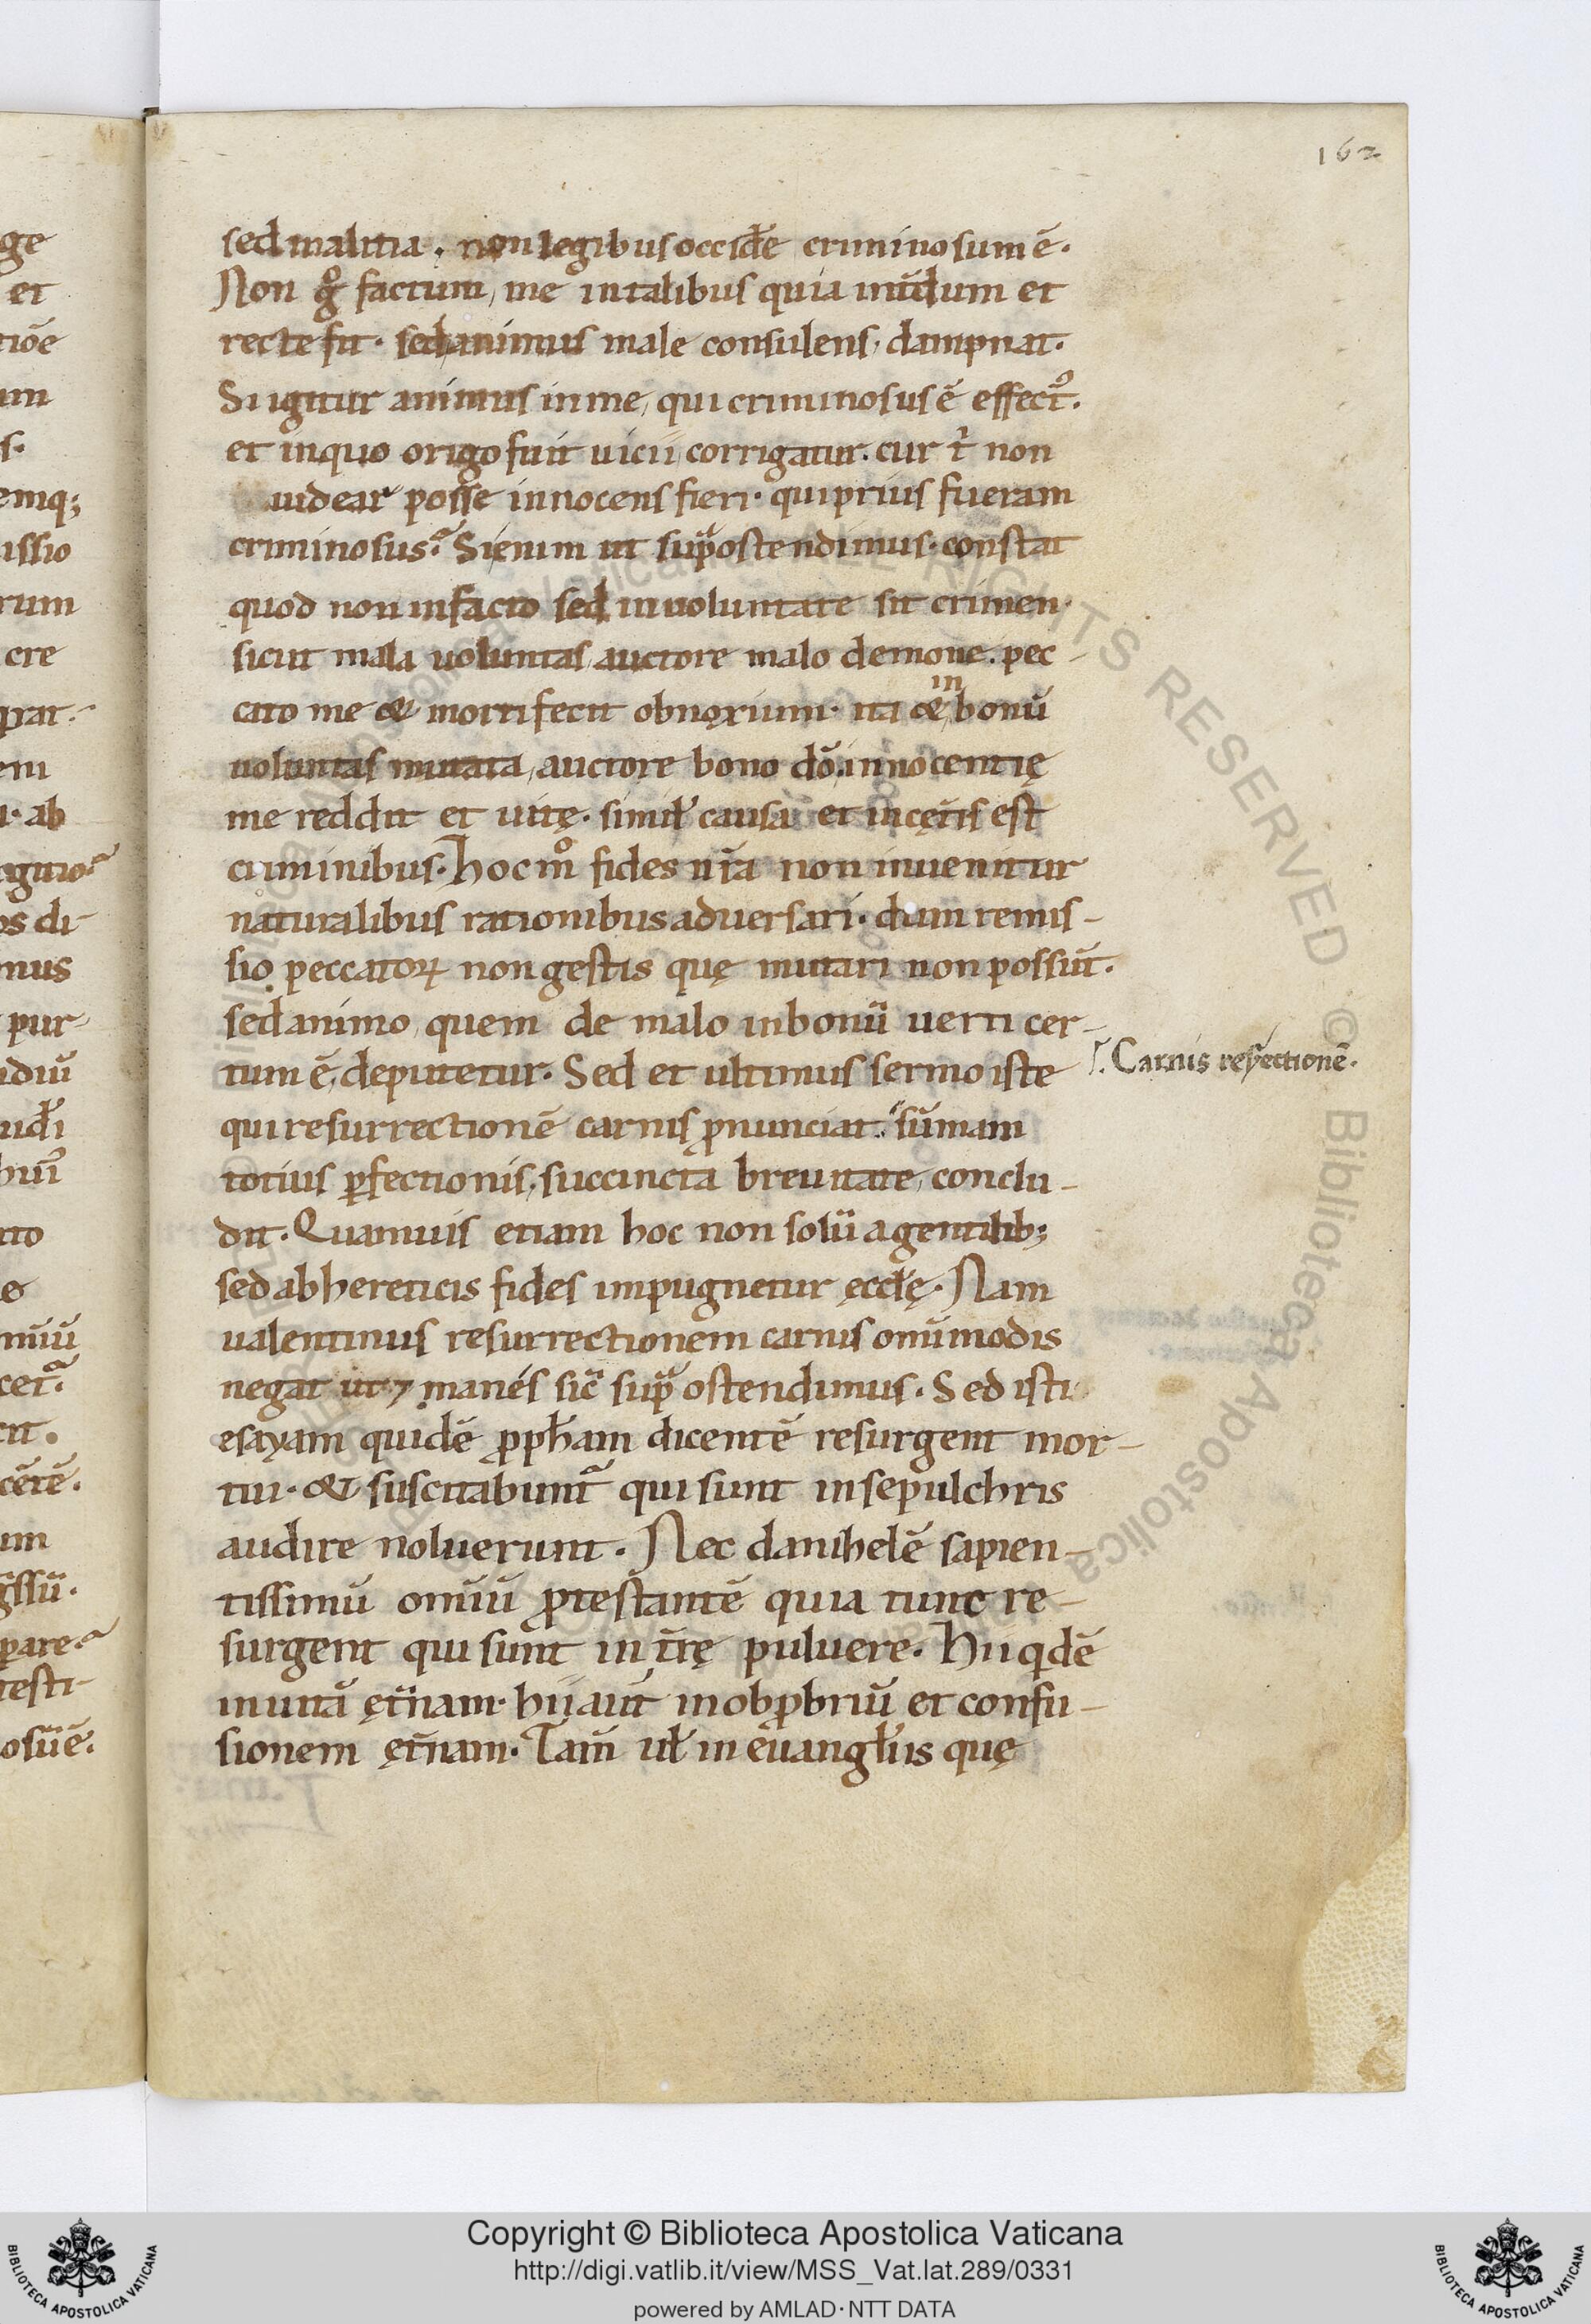 162
sed malitia. non legibus occiđe criminosum ē.
Non gͦ factum, me in talibus quia interdum et
recte fit. sed animus male consulens, dampnat.
Si igitur animus in me, qui criminosus ē effect᷒.
et in quo origo fuit uicii corrigatur. cur t̄ non
uidear posse innocens fieri. qui prius fueram
criminosus? Si enim ut sup̃ ostendimus. constat
quod non in facto sed in uoluntate sit crimen.
sicut mala uoluntas, auctore malo demone. pec-
cato me & morti fecit obnoxium. ita &
in
bonū
uoluntas mutata, auctore bono dō. innocentię
me reddit et uitę. simił causa et in cęt̄is est
criminibus. Hoc mͦ fides nr̄a non inuenitur
naturalibus rationibus aduersari. dum remis-
sio peccatoꝝ non gestis quę mutari non possūt.
sed animo, quem de malo in bonū uerti cer-
tum ē, deputetur. Sed et ultimus sermo iste
Carnis resr̄ectionē.
qui resurrectionē carnis ꝓnunciat. sūmam
totius ꝑfectionis, succincta breuitate, conclu-
dit. Quamuis etiam hoc non solū a gentilib;
sed ab hereticis fides impugnetur ęccłę. Nam
ualentinus resurrectionem carnis omīmodis
negat ut ⁊ manes sic̄ sup̃ ostendimus. Sed isti
esayam quidē ꝓpħam dicentē resurgent mor-
tui. & suscitabunt᷑ qui sunt in sepulchris
audire noluerunt. Nec danihelē sapien-
tissimū omīū ꝓtestantē quia tunc re-
surgent qui sunt in t̄rę puluere. Hii qͥdē
in uitā ęt̄nam. hii aut̄ in obꝓbriū et confu-
sionem ęt̄nam. Tam̄ uł in euangłiis quę
Copyright © Biblioteca Apostolica Vaticana
http://digi.vatlib.it/view/MSS_Vat.lat.289/0331
powered by AMLAD·NTT DATA
BIBLIOTECA APOSTOLICA VATICANA
BIBLIOTECA APOSTOLICA VATICANA